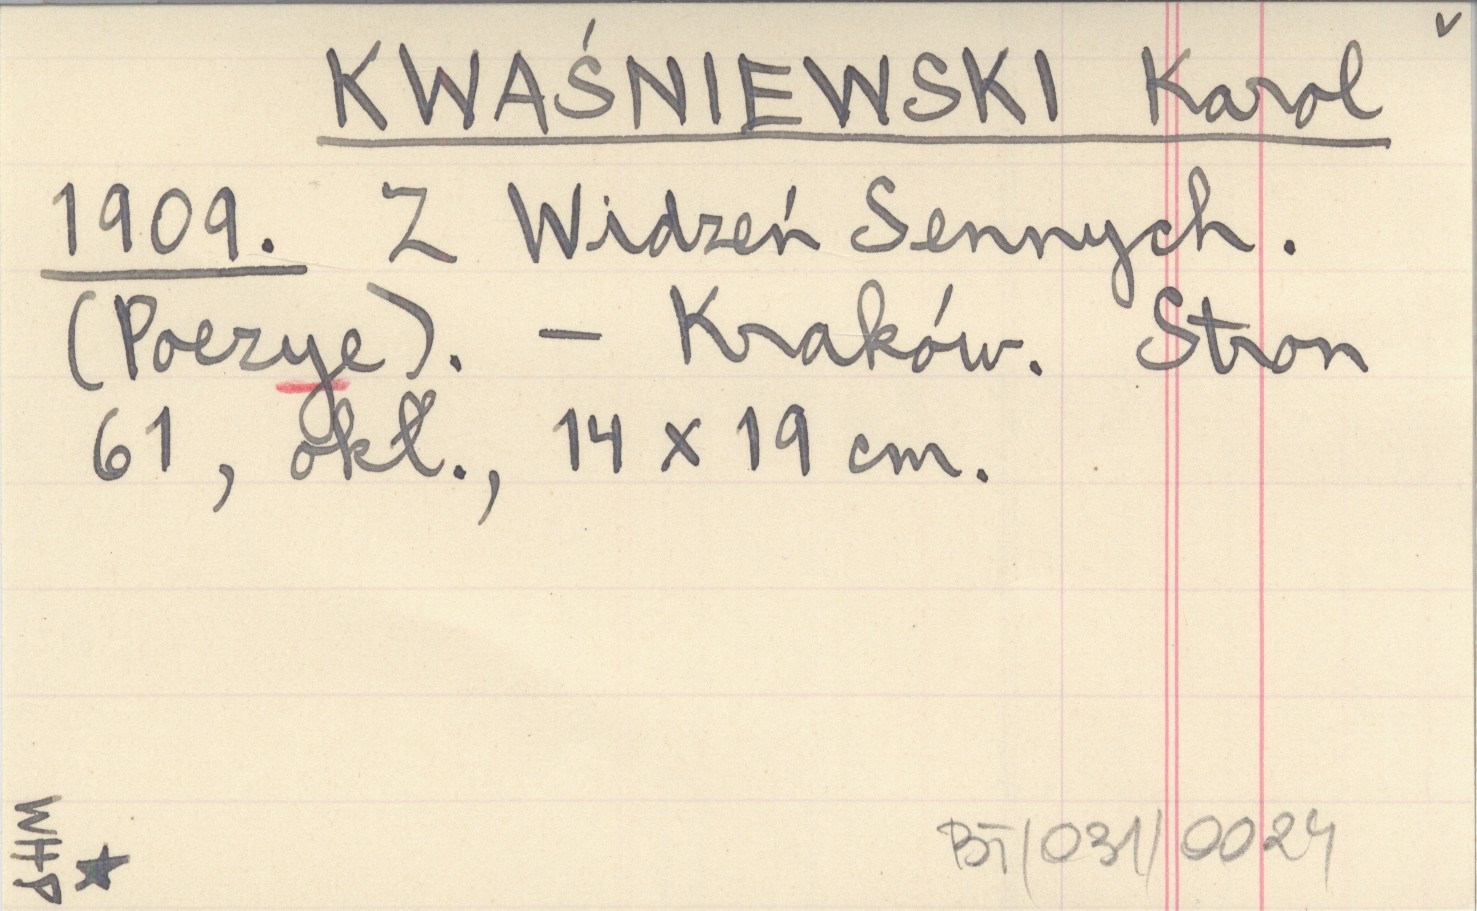 KWAŚNIEWSKI Karol
1909. Z Widzeń Sennych.
(Poezye). – Kraków. Stron
61, okł., 14 x 19 cm.
WHP ★
BT/031/0024